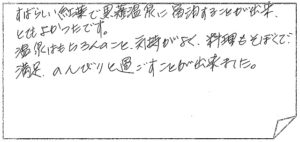 すばらしい紅葉で黒川温泉に宿泊することが出来、
とてもよかったです。
温泉はもちろんのこと、気持がよく、料理もそぼくで、
満足、のんびりと過ごすことが出来ました。